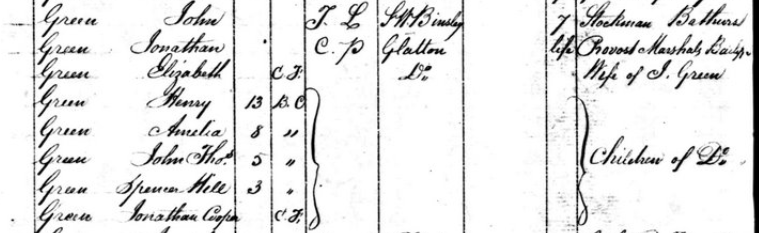 Green John T. L S.W. Binsley 7 Stockman Bathurst
Green Jonathan C. P Glatton life Provost Marshals
Green Elizabeth C F. Do. Wife of J. Green
Green Henry 13 B. C
Green Amelia 8 "
Green John Thos. 5 " Children of Do.
Green Spencer Well 3 "
Green Jonathan Cooper C. F.